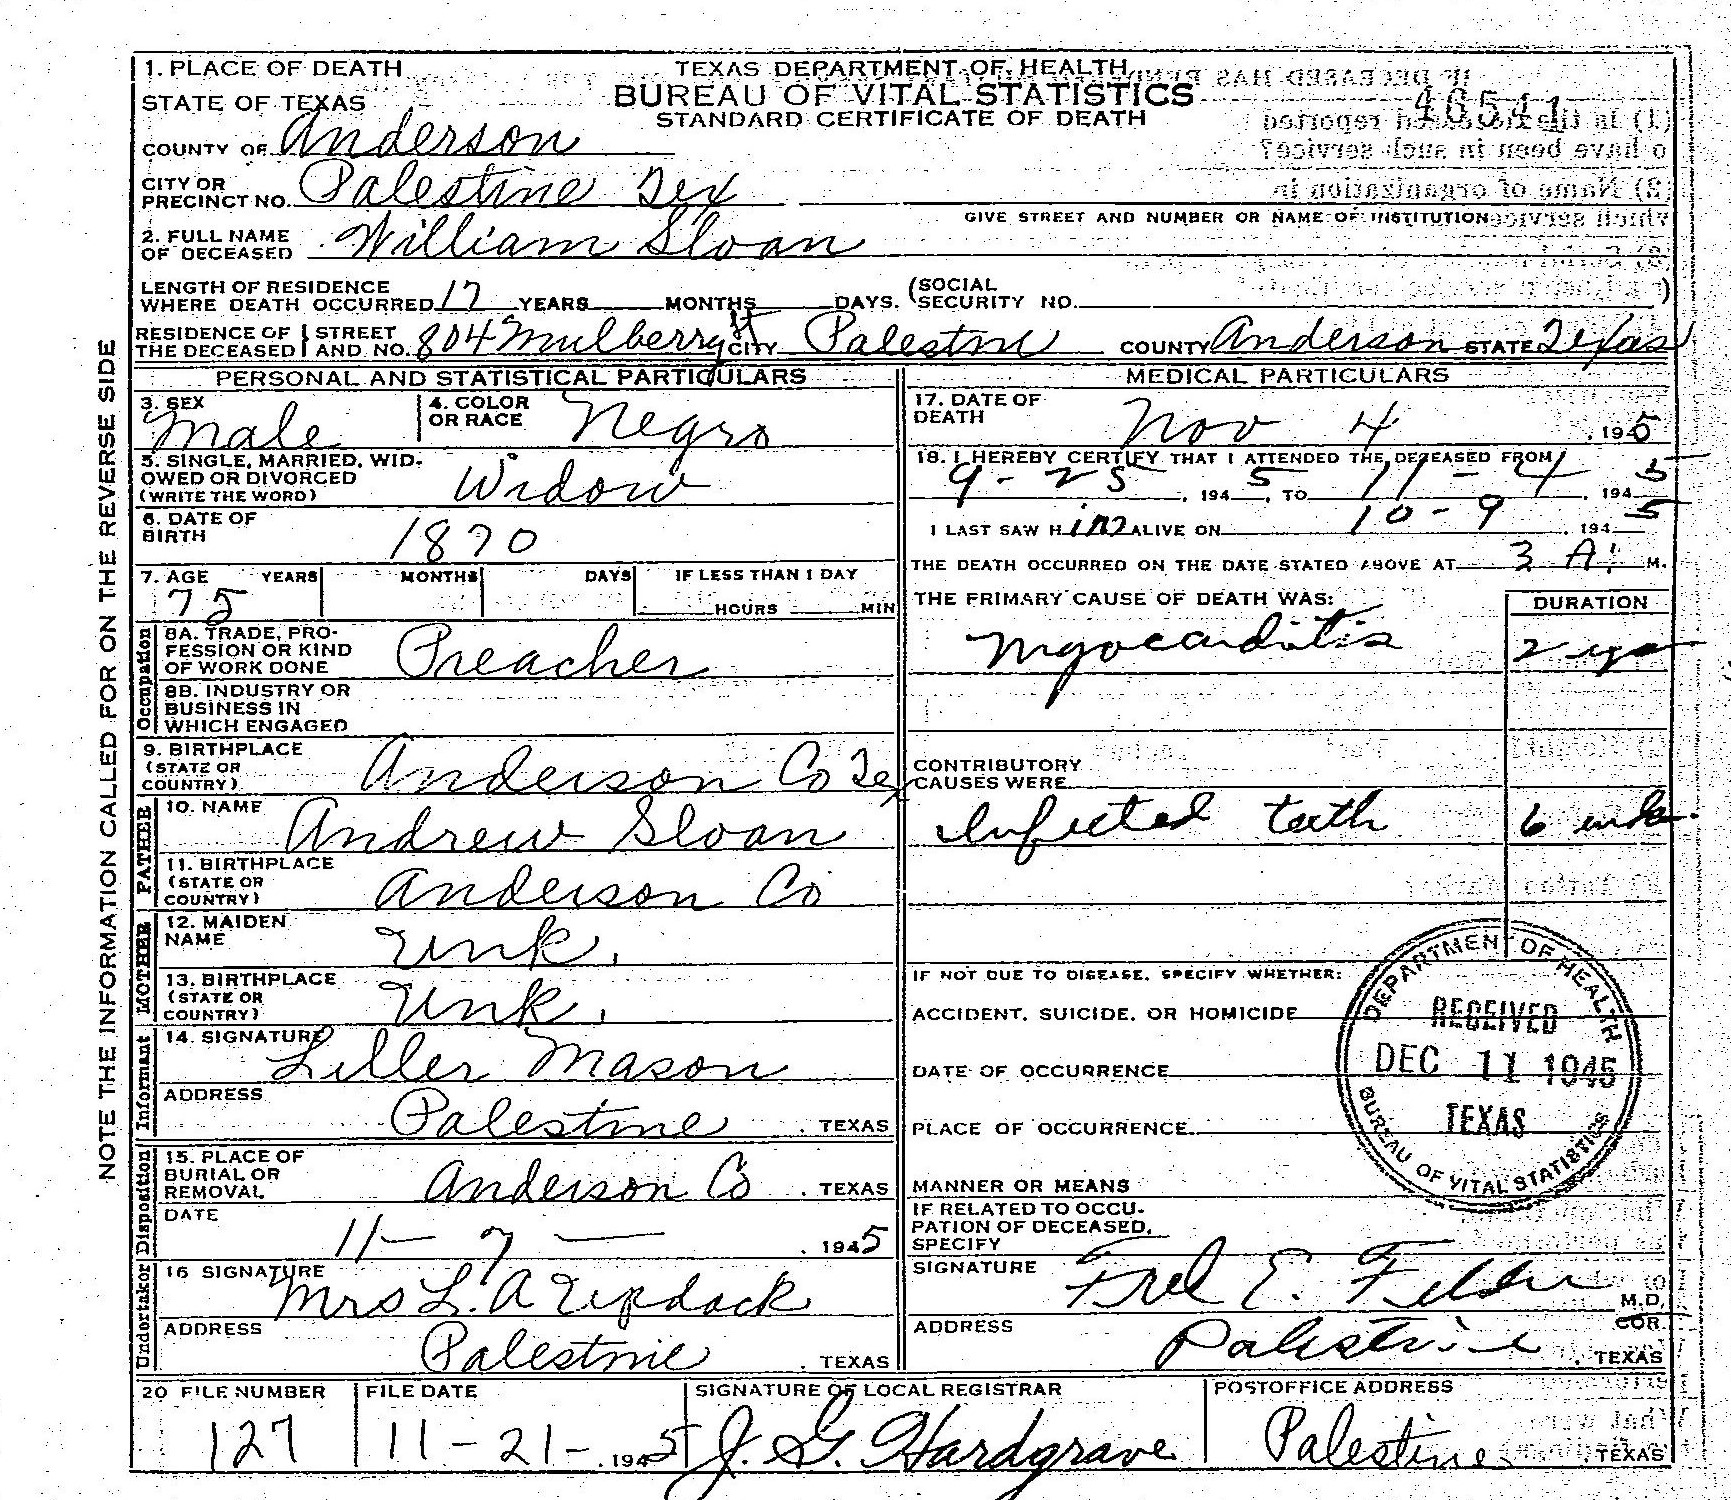 1. PLACE OF DEATH
STATE OF TEXAS
TEXAS DEPARTMENT OF HEALTH
BUREAU OF VITAL STATISTICS
STANDARD CERTIFICATE OF DEATH
46541
COUNTY OF Anderson
CITY OR PRECINCT NO. Palestine Tex
GIVE STREET AND NUMBER OR NAME OF INSTITUTION
2. FULL NAME OF DECEASED William Sloan
LENGTH OF RESIDENCE WHERE DEATH OCCURRED 17 YEARS MONTHS DAYS. (SOCIAL SECURITY NO. )
RESIDENCE OF THE DECEASED STREET AND NO. 804 Mulberry St CITY Palestine COUNTY Anderson STATE Texas
NOTE THE INFORMATION CALLED FOR ON THE REVERSE SIDE
PERSONAL AND STATISTICAL PARTICULARS
3. SEX Male
4. COLOR OR RACE Negro
5. SINGLE, MARRIED, WIDOWED OR DIVORCED (WRITE THE WORD) Widow
6. DATE OF BIRTH 1870
7. AGE YEARS MONTHS DAYS IF LESS THAN 1 DAY
75 HOURS MIN
Occupation
8A. TRADE, PROFESSION OR KIND OF WORK DONE Preacher
8B. INDUSTRY OR BUSINESS IN WHICH ENGAGED
9. BIRTHPLACE (STATE OR COUNTRY) Anderson Co Tex
FATHER
10. NAME Andrew Sloan
11. BIRTHPLACE (STATE OR COUNTRY) Anderson Co
MOTHER
12. MAIDEN NAME Unk.
13. BIRTHPLACE (STATE OR COUNTRY) Unk.
Informant
14. SIGNATURE Liller Mason
ADDRESS Palestine, TEXAS
Disposition
15. PLACE OF BURIAL OR REMOVAL Anderson Co, TEXAS
DATE 11-7-, 1945
Undertaker
16 SIGNATURE Mrs L. A
ADDRESS Palestine, TEXAS
MEDICAL PARTICULARS
17. DATE OF DEATH Nov 4, 1945
18. I HEREBY CERTIFY THAT I ATTENDED THE DECEASED FROM
9-25, 1945, TO 11-4, 1945
I LAST SAW Him ALIVE ON 10-9, 1945
THE DEATH OCCURRED ON THE DATE STATED ABOVE AT 3 A. M.
THE PRIMARY CAUSE OF DEATH WAS: DURATION
Myocarditis 2 yrs
CONTRIBUTORY CAUSES WERE
Infected teeth 6 wks.
IF NOT DUE TO DISEASE, SPECIFY WHETHER:
ACCIDENT, SUICIDE, OR HOMICIDE
DATE OF OCCURRENCE
PLACE OF OCCURRENCE
MANNER OR MEANS
IF RELATED TO OCCUPATION OF DECEASED, SPECIFY
DEPARTMENT OF HEALTH
RECEIVED
DEC 11 1945
TEXAS
BUREAU OF VITAL STATISTICS
SIGNATURE Fred E. Felder M.D.
COR.
ADDRESS Palestine, TEXAS
20 FILE NUMBER 127
FILE DATE 11-21-, 1945
SIGNATURE OF LOCAL REGISTRAR J. G. Hardgrave
POSTOFFICE ADDRESS Palestine, TEXAS